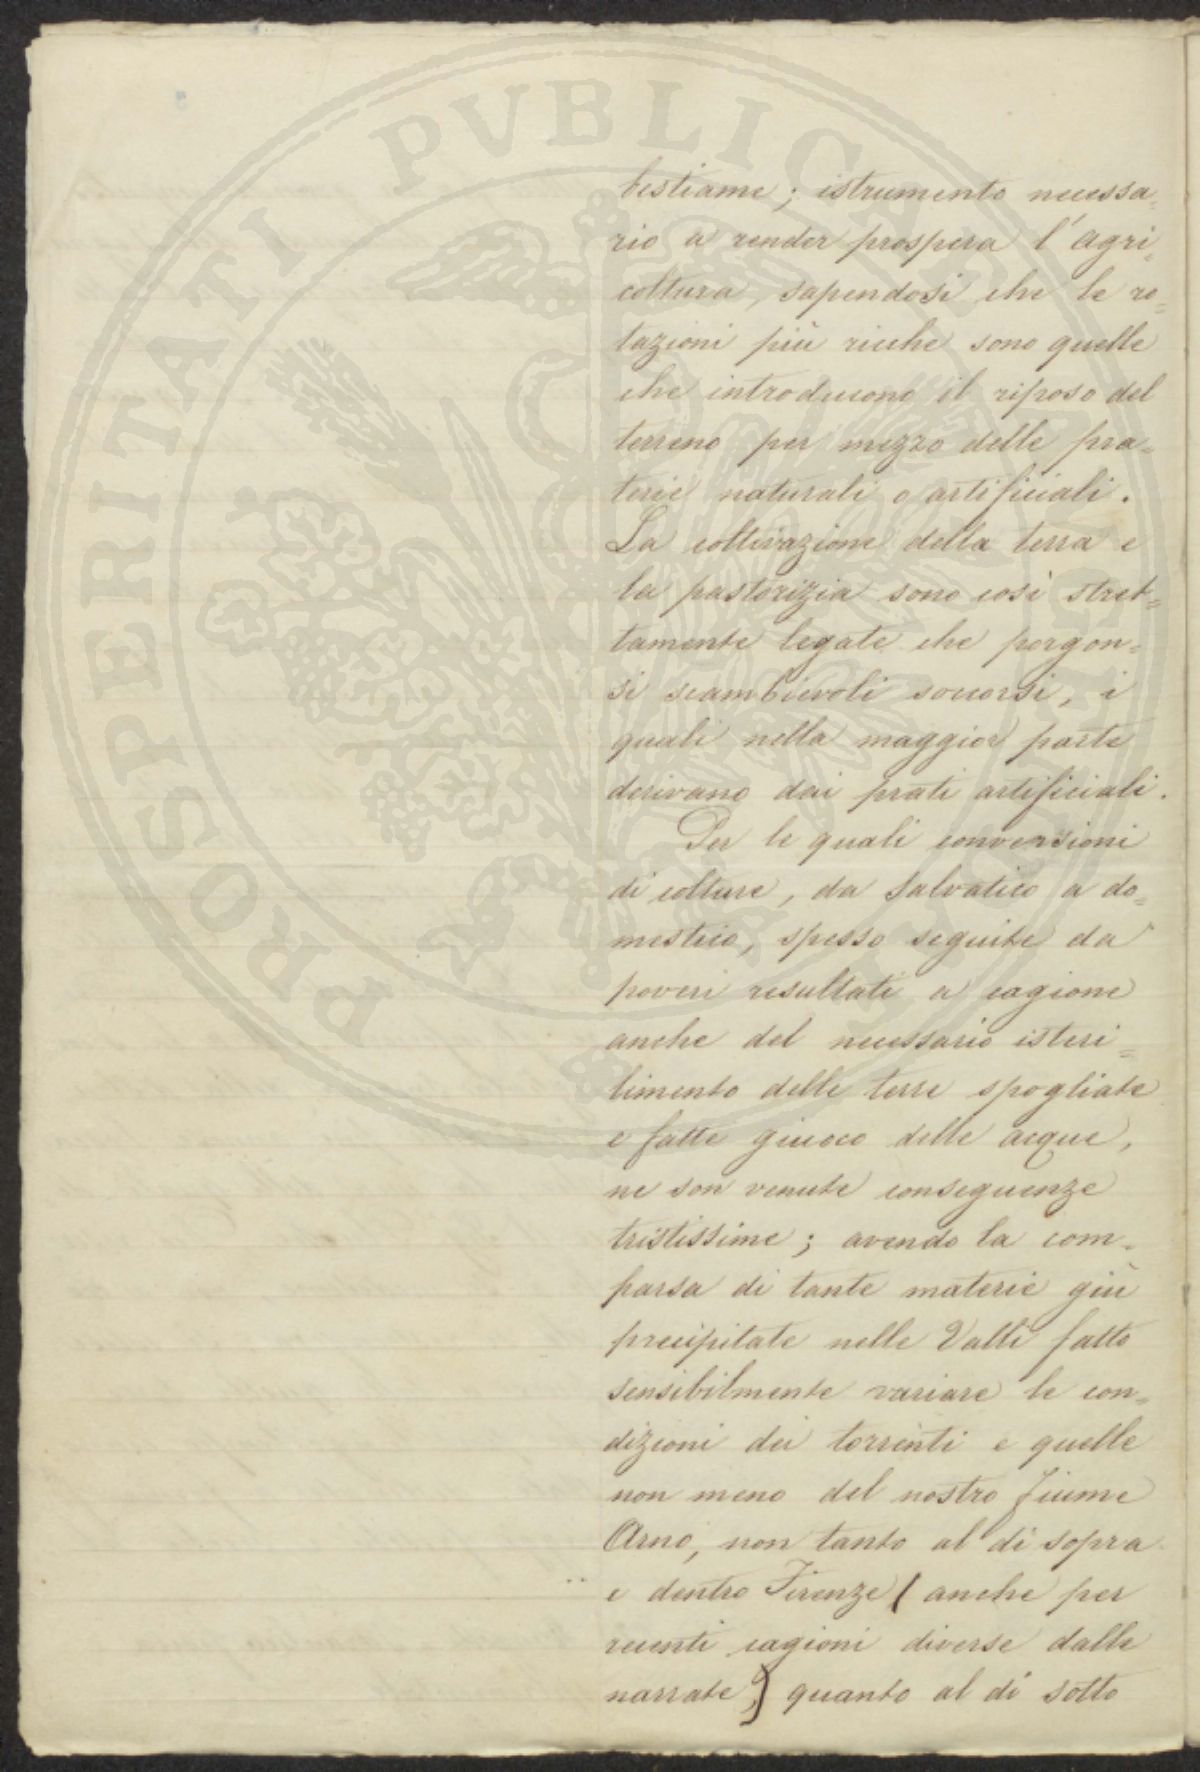 PROSPERITATI PVBLICAE
bestiame; istrumento necessa=
rio a render prospera l'agri=
coltura, sapendosi che le ro=
tazioni più ricche sono quelle
che introducono il riposo del
terreno per mezzo delle pra=
terie naturali o artificiali.
La coltivazione della terra e
la pastorizia sono così stret=
tamente legate che porgon=
si scambievoli soccorsi, i
quali nella maggior parte
derivano dai prati artificiali.
Per le quali conversioni
di colture, da salvatico a do=
mestico, spesso seguite da
poveri resultati a cagione
anche del necessario isteri=
limento delle terre spogliate
e fatte giuoco delle acque,
ne son venute conseguenze
tristissime; avendo la com=
parsa di tante materie giù
precipitate nelle Valli fatto
sensibilmente variare le con=
dizioni dei torrenti e quelle
non meno del nostro fiume
Arno, non tanto al di sopra
e dentro Firenze (anche per
recenti cagioni diverse dalle
narrate,) quanto al di sotto